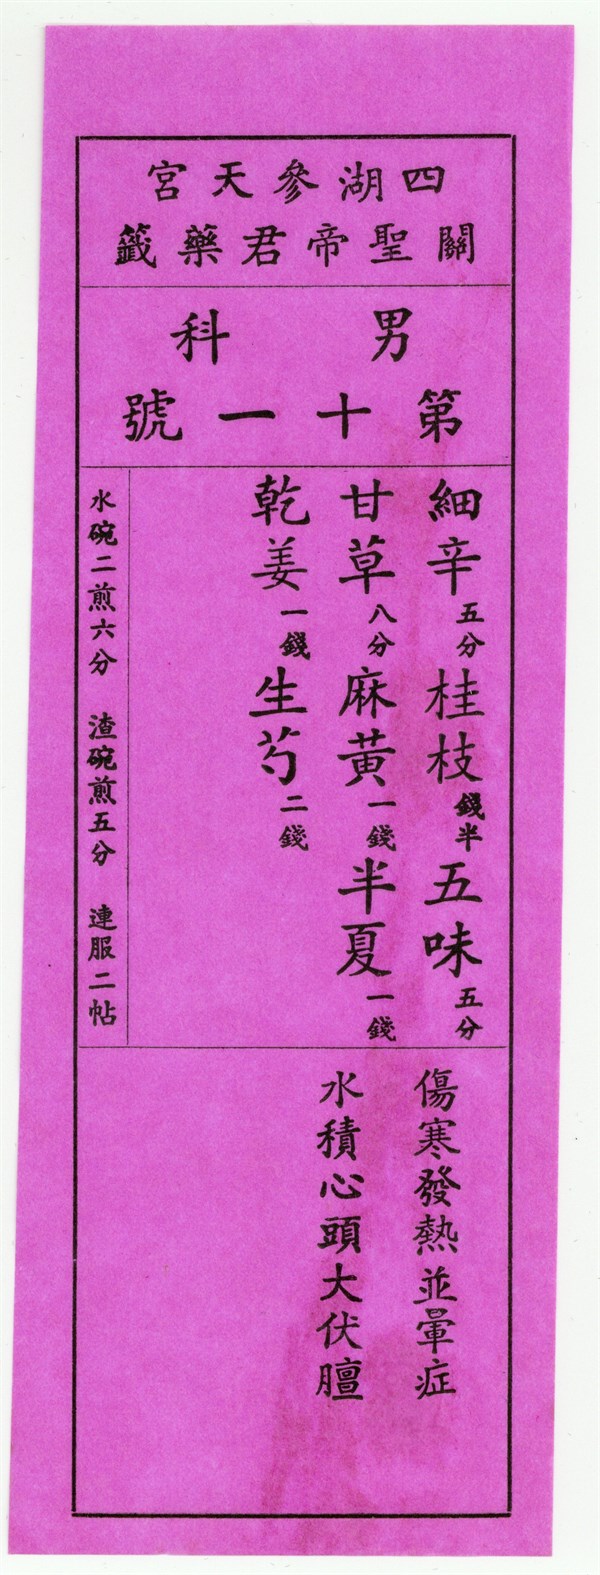 四湖參天宮
關聖帝君藥籤
男科
第十一號
細辛五分桂枝錢半五味五分
甘草八分麻黃一錢半夏一錢
乾姜一錢生芍二錢
水碗二煎六分 渣碗煎五分 連服二帖
傷寒發熱並暈症
水積心頭大伏膻